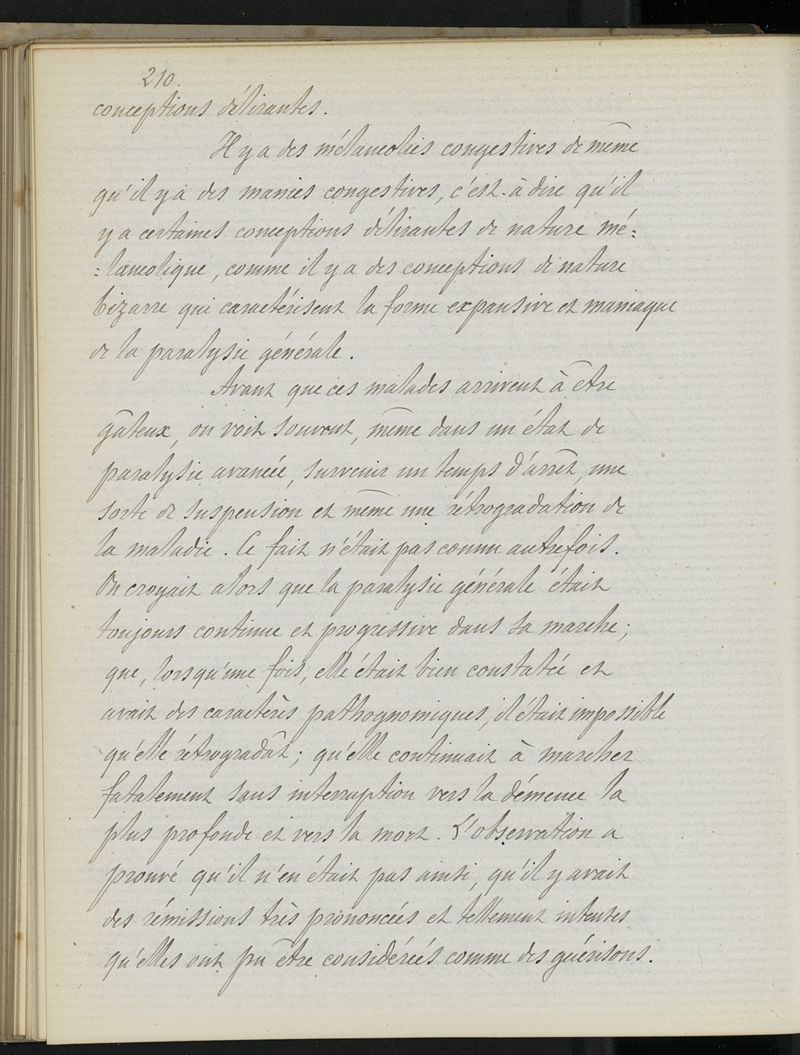 210.
conceptions délirantes.
Il y a des mélancolies congestives de même
qu'il y a des manies congestives, c'est-à dire qu'il
y a certaines conceptions délirantes de nature mé:
:lancolique, comme il y a des conceptions de nature
bizarre qui caractérisent la forme expansive et maniaque
de la paralysie générale.
Avant que ces malades arrivent à être
gâteux, on voit souvent, même dans un état de
paralysie avancée, survenir un temps d'arrêt, une
sorte de suspension et même une rétrogradation de
la maladie. Ce fait n'était pas connu autrefois.
On croyait alors que la paralysie générale était
toujours continue et progressive dans sa marche;
que, lorsqu'une fois, elle était bien constatée et
avait des caractères pathognomiques, il était impossible
qu'elle rétrogradât; qu'elle continuait à marcher
fatalement sans interruption vers la démence la
plus profonde et vers la mort. L'observation a
prouvé qu'il n'en était pas ainsi, qu'il y avait
des rémissions très prononcées et tellement
qu'elles ont pu être considérées comme des guérisons.